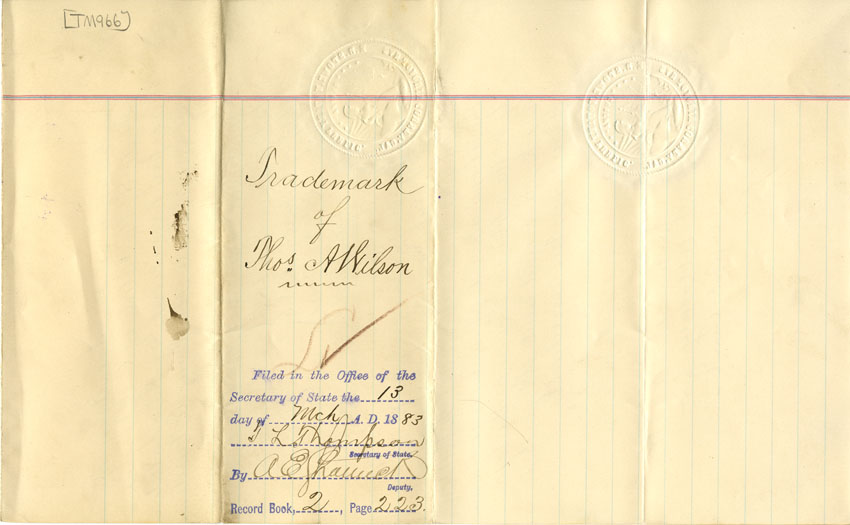 [TM966]
Trademark
of
Thos. A Wilson
Filed in the Office of the
Secretary of State the 13
day of Mch A. D. 1883
T L Thompson
Secretary of State.
By A E
Deputy.
Record Book, 2, Page 223.